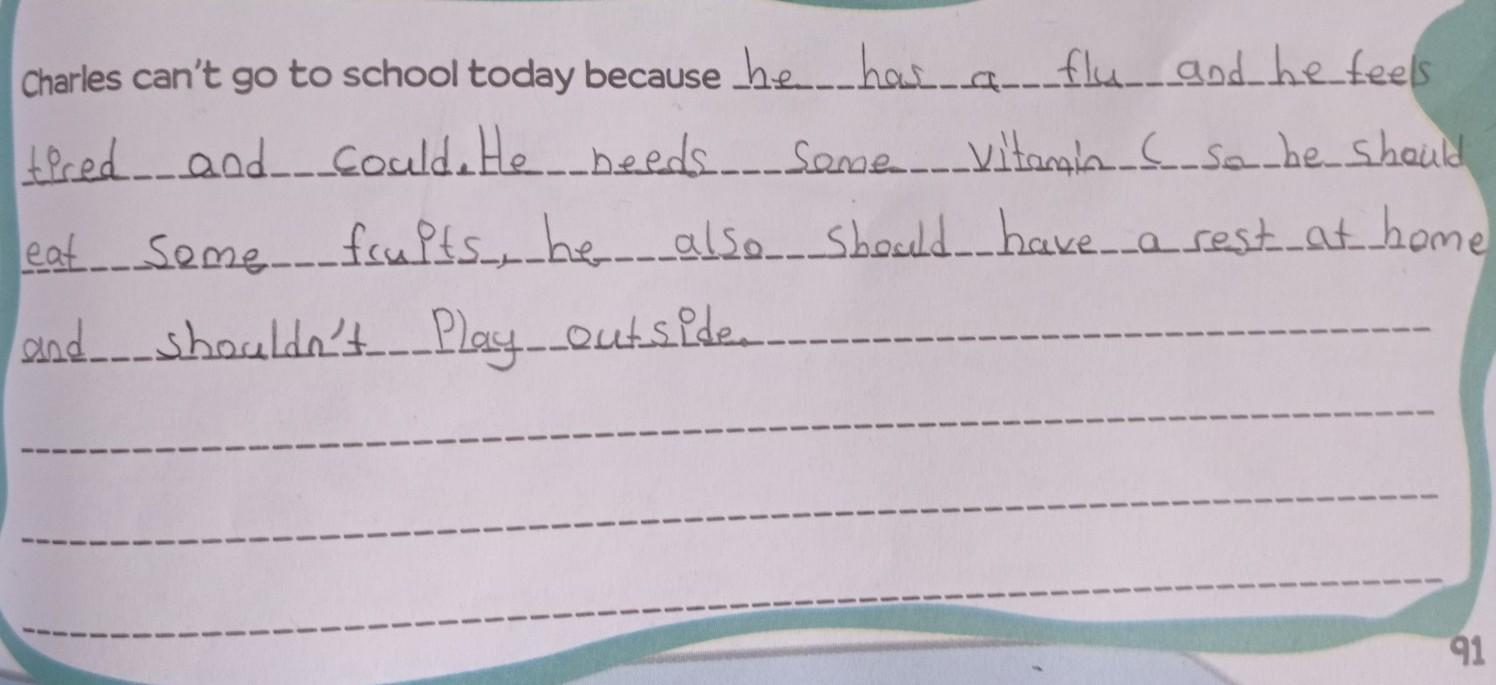 Charles can't go to school today because he has a flu and he feels
tired and could. He needs some vitamin C so he should
eat some fruits, he also should have a rest at home
and shouldn't Play outside.
91